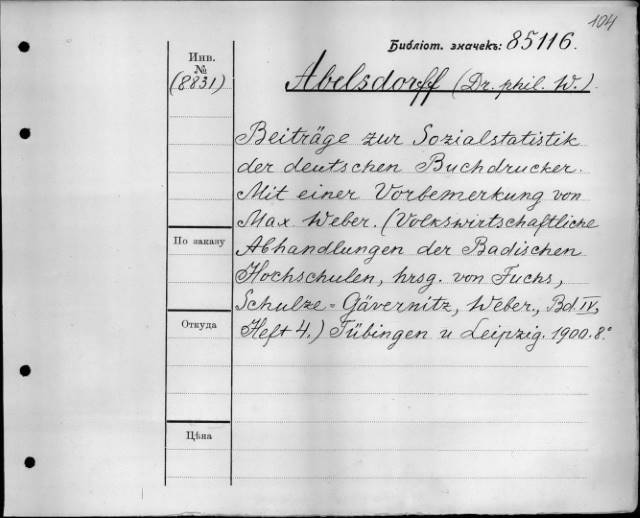 104
Библіот. значекъ: 85116.
Инв.
№
(8831)
Abelsdorff (Dr. phil. W.).
Beiträge zur Sozialstatistik
der deutschen Buchdrucker.
Mit einer Vorbemerkung von
Max Weber. (Volkswirtschaftliche
По заказу
Abhandlungen der Badischen
Hochschulen, hrsg. von Fuchs,
Schulze=Gävernitz, Weber, Bd. IV,
Откуда
Heft 4.) Tübingen u Leipzig. 1900. 8.°
Цѣна